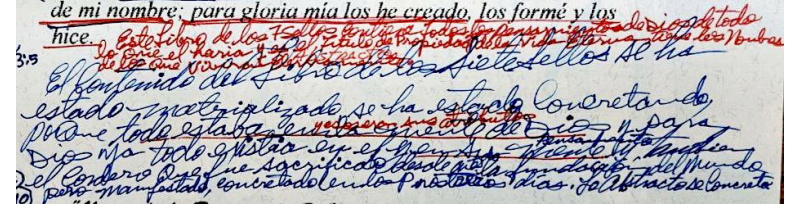 de mi nombre; para gloria mía los he creado, los formé y los
hice. Este Libro de los 7 Sellos contiene todos los pensamientos de Dios, de todo
lo que el haria y es el titulo de Propiedad de la Vida Eterna, tiene los Nombres
de los que
El Contenido del Libro de los Siete sellos se ha
estado materializando se ha estado Concretando,
porque todo estaba en la mente de Dios y para
y esos eran sus atributos
Dios ya todo existia en el pensamiento
el Cordero que fue sacrificado desde la fundación del Mundo
pero manifestado, concretado en los Postreros dias. Lo Abstracto se Concreta